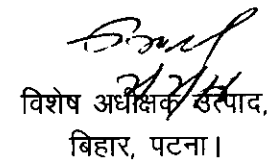 विशेष अधीक्षक उत्पाद,
बिहार, पटना।